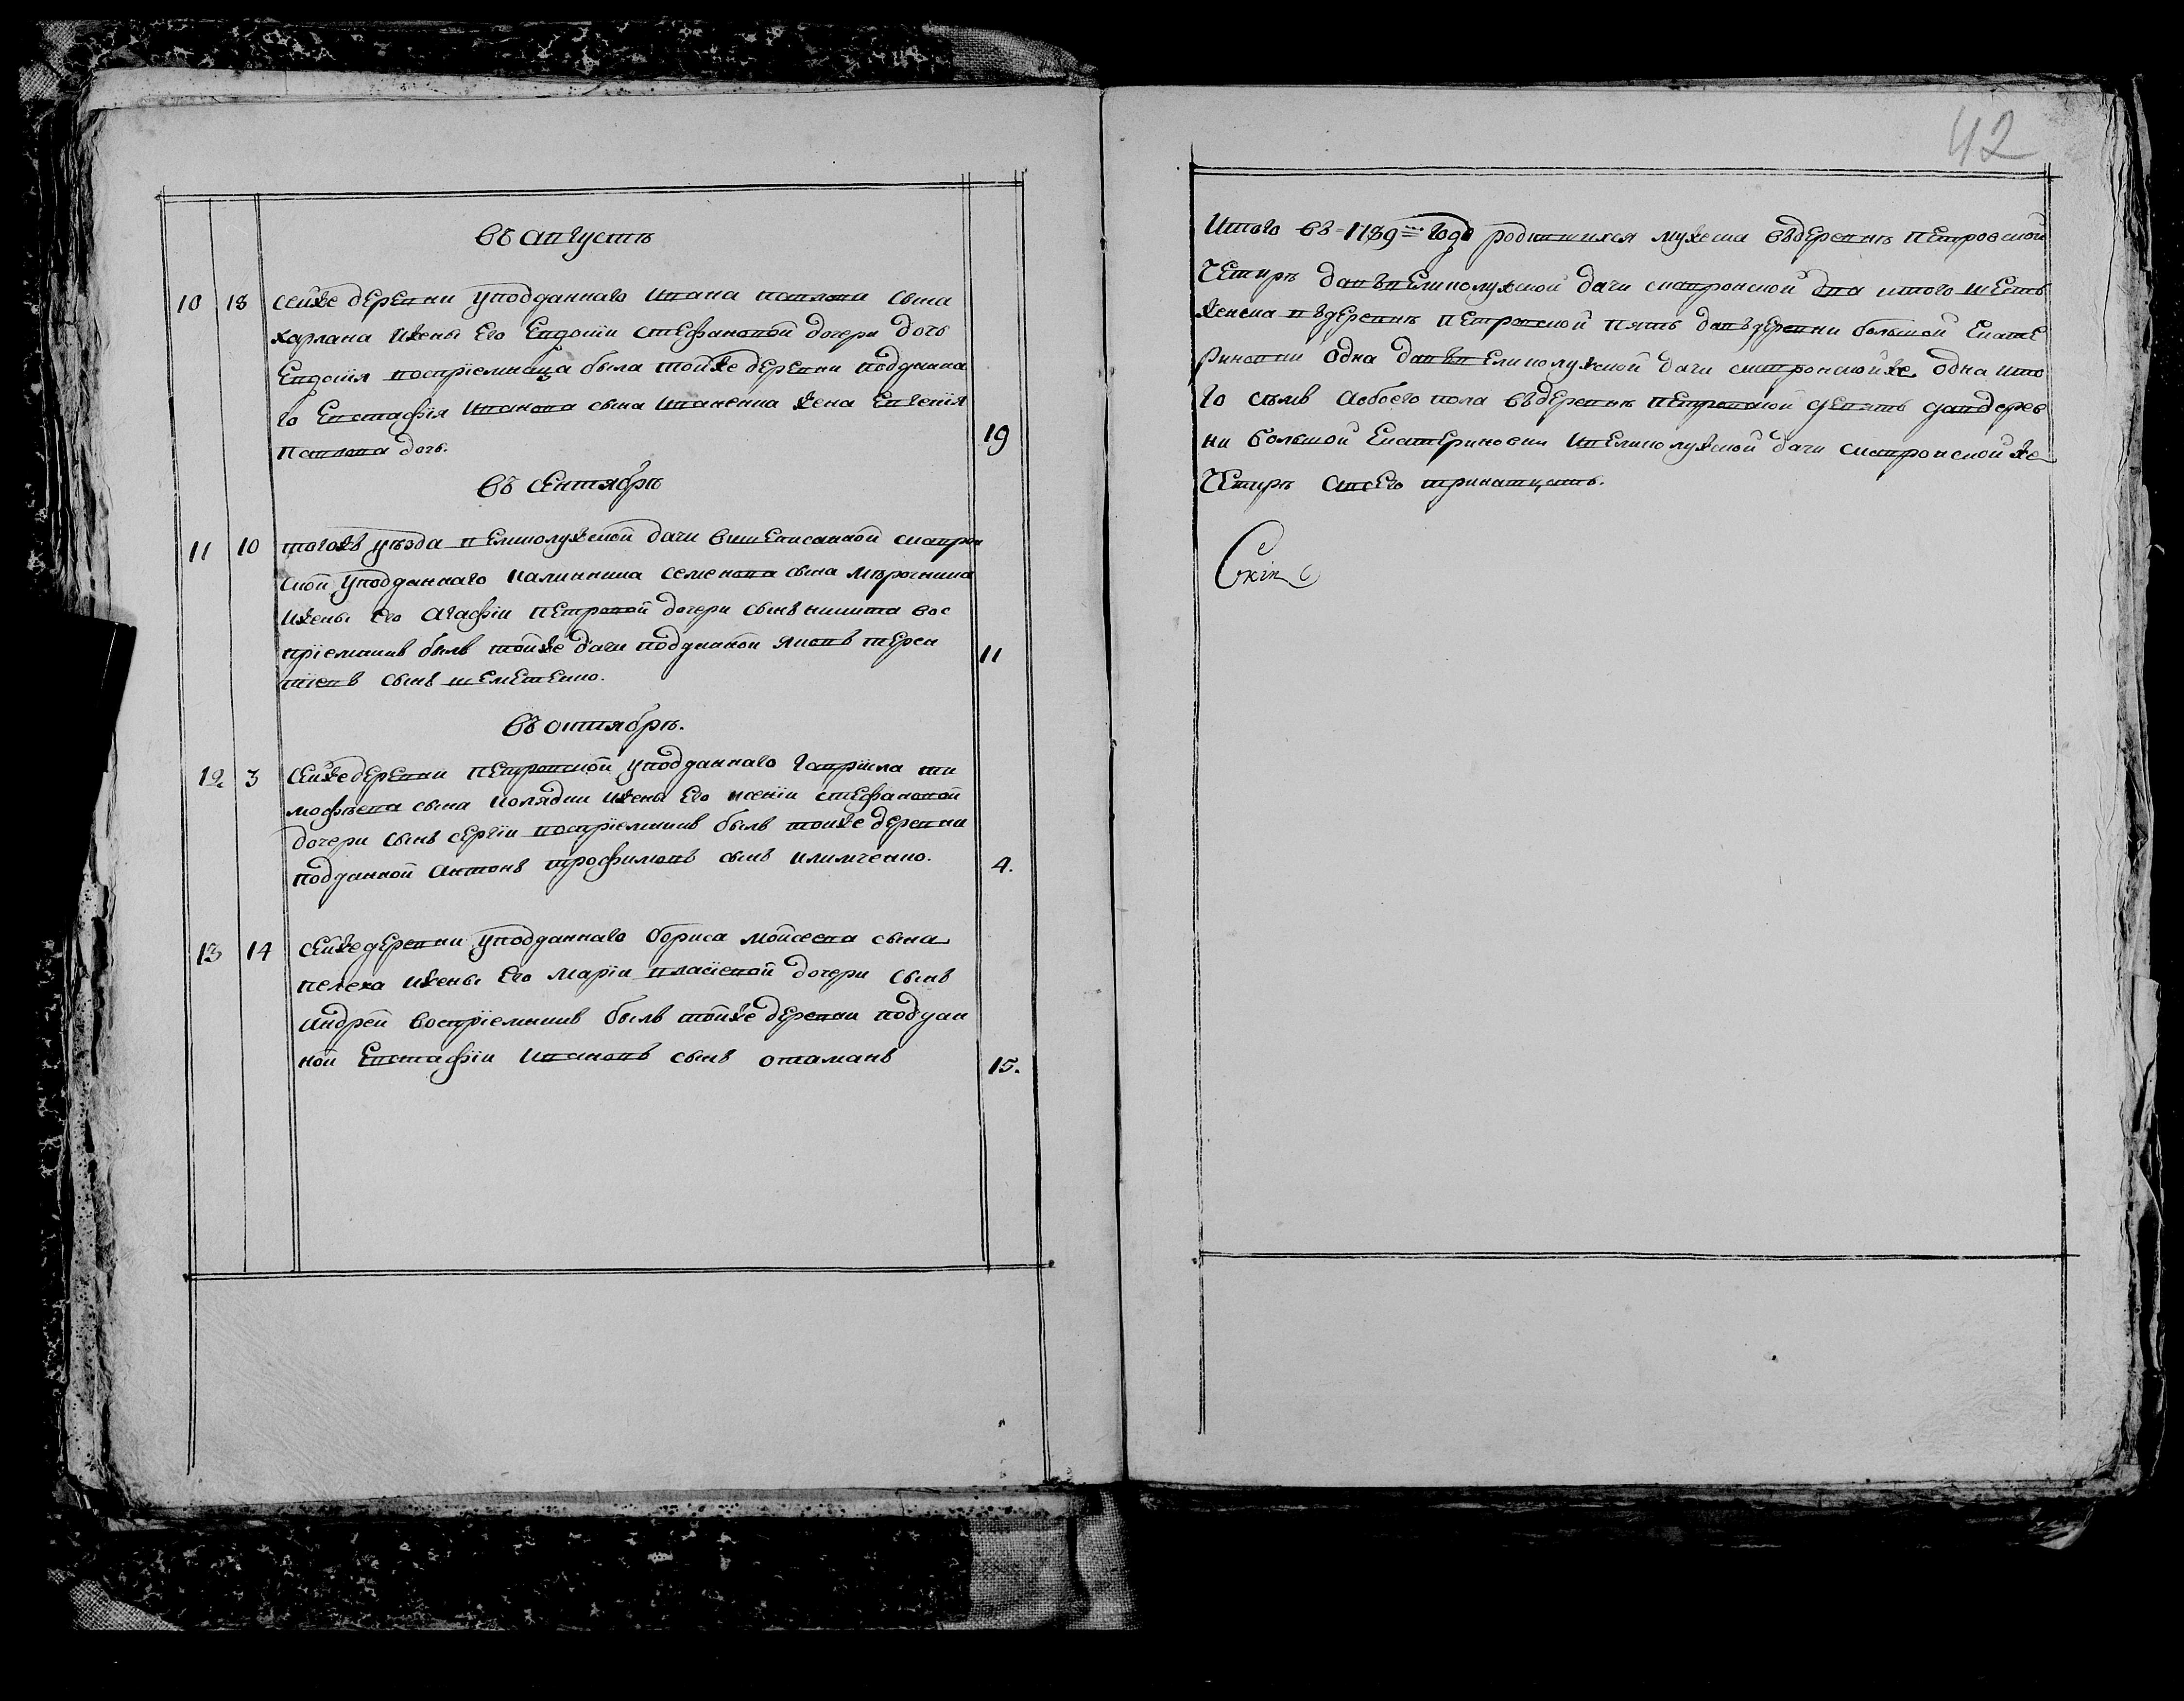 42
въ августѣ
10 18 сейже деревни уподданнаго Ивана павлова сына
харлана ижены его Евдокіи стефановой дочери дочь
Евдокія воспріемница была тойже деревни подданна
го Евстафія Иванова сына Иваненка жена Евгенія
павлова дочь. 19
въ Сентябрѣ
11 10 тогожъ уѣзда великолужской дачи вишеписанной
ской уподданнаго калинника семенова сына мѣрочника
ижены его агафіи петровой дочери сынъ никита вос
пріемникъ былъ тойже дачи подданой яковъ терен
тіевъ сынъ шеметенко. 11
въ октябрѣ.
12 3 Сейже деревни петровской уподданнаго гавріила ти
мофѣева сына колядки ижены его ксеніи стефановой
дочери сынъ сергіи воспріемникъ былъ тойже деревни
подданной антонъ трофимовъ сынъ климченко. 4.
13 14 сейже деревни уподданнаго бориса мойсеева сына
пелеха ижены его маріи власіевой дочери сынъ
андрей воспріемникъ былъ тойже деревни поддан
ной Евстафіи Ивановъ сынъ отаманъ 15.
Итого въ 1789 годѣ родившихся мужеска въдеревнѣ петровской
Четирѣ давъвеликолужской дачи два итого шесть
женска въдеревнѣ петровской пять давъдеревни большой Екате
риновки одна давъвеликолужской дачи одна ито
го семъ аобоего пола въдеревнѣ петровской девять дандерев
ни большой Екатериновки ивеликолужской дачи
Четирѣ авсего тринатцать.